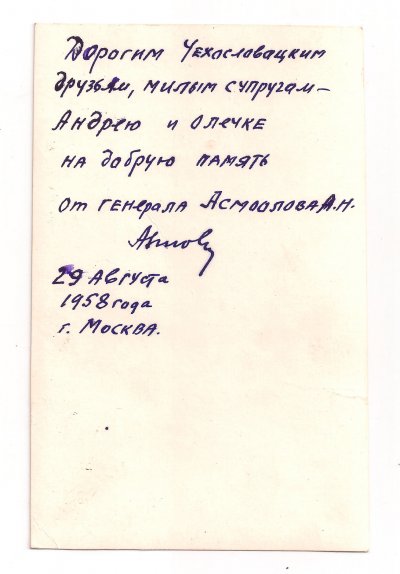 Дорогим Чехословацким
друзьям, милым супругам –
Андрею и Олечке
на добрую память
от генерала Асмолова А.Н.
29 августа
1958 года
г. Москва.